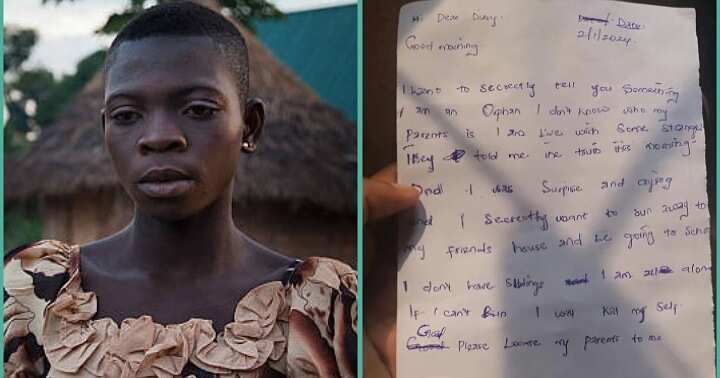 Hi Dear Diary.
Date
2/1/2024.
Good morning
I want to secrectly tell you Something
I am an Orphan I don't know who my
parents is I am live with some stranger
They told me the truth this morning
And I was Surprise and crying
And I Secrectly want to run away to
my friends house and be going to school
I don't have Siblings I am alone
If I can't I will Kill my self.
God
Please my parents to me